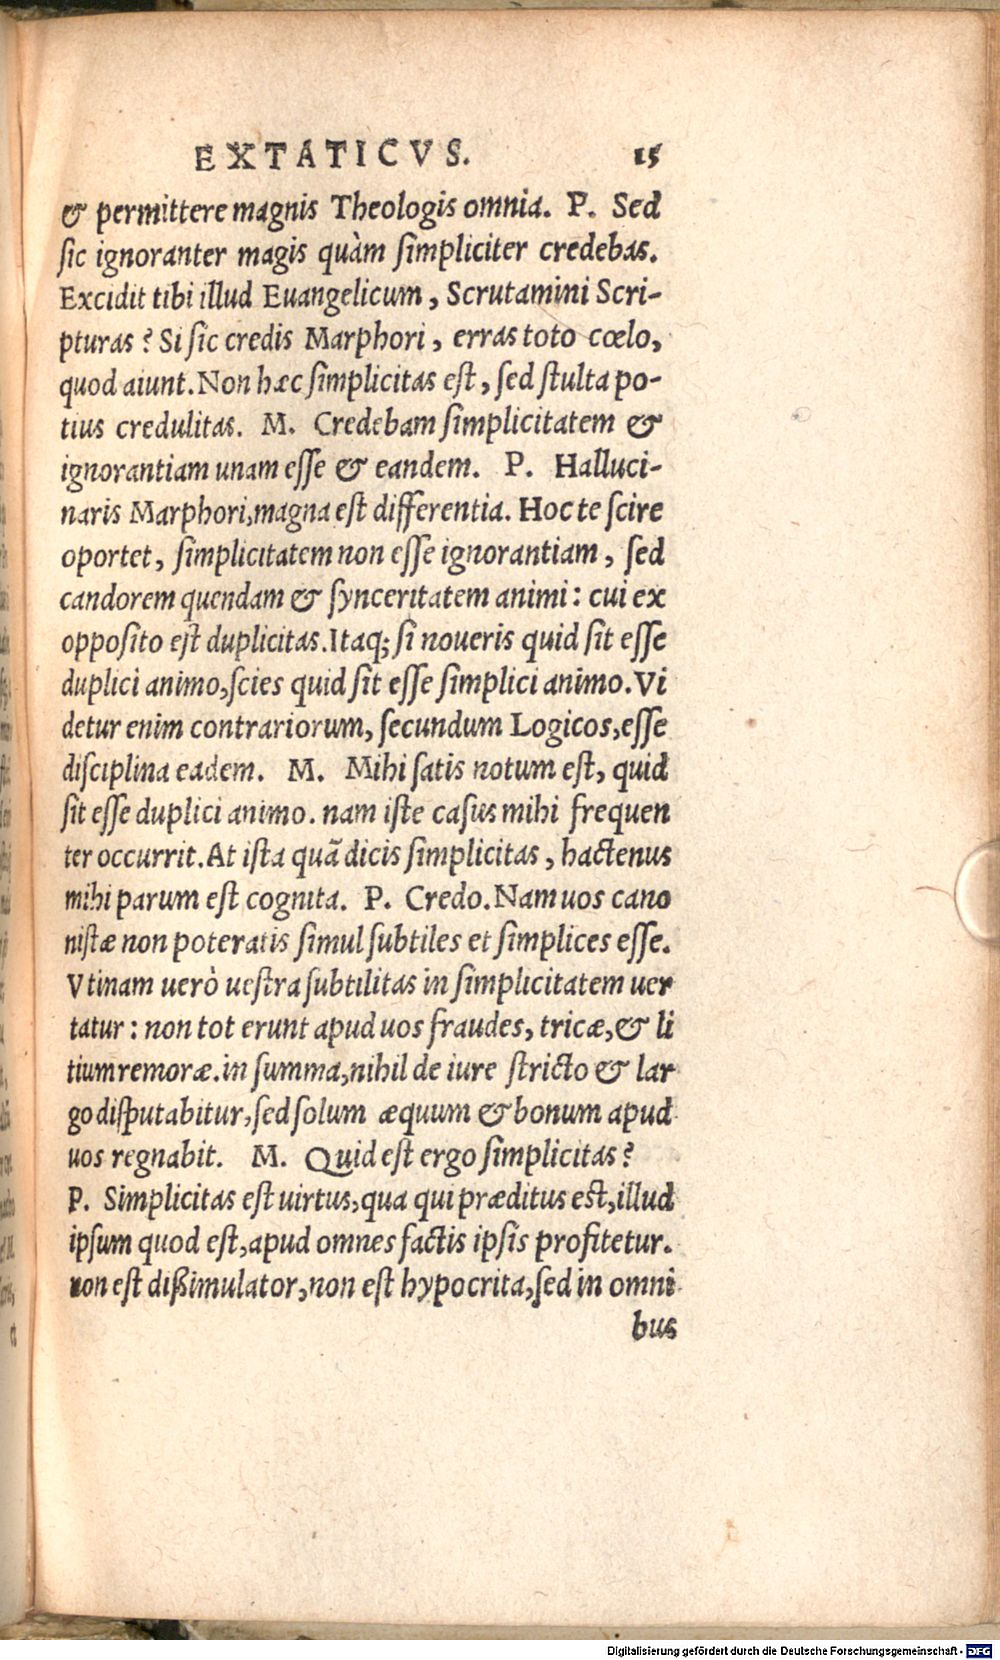 EXTATICVS. 15
& permittere magnis Theologis omnia. P. Sed
ſic ignoranter magis quàm ſimpliciter credebas.
Excidit tibi illud Euangelicum, Scrutamini Scri-
pturas? Si ſic credis Marphori, erras toto cœlo,
quod aiunt. Non hæc ſimplicitas eſt, ſed ſtulta po-
tius credulitas. M. Credebam ſimplicitatem &
ignorantiam unam eſſe & eandem. P. Halluci-
naris Marphori, magna eſt differentia. Hoc te ſcire
oportet, ſimplicitatem non eſſe ignorantiam, ſed
candorem quendam & ſynceritatem animi: cui ex
oppoſito eſt duplicitas. Itaq; ſi noueris quid ſit eſſe
duplici animo, ſcies quid ſit eſſe ſimplici animo. Vi
detur enim contrariorum, ſecundum Logicos, eſſe
diſciplina eadem. M. Mihi ſatis notum eſt, quid
ſit eſſe duplici animo. nam iſte caſus mihi frequen
ter occurrit. At iſta quã dicis ſimplicitas, hactenus
mihi parum eſt cognita. P. Credo. Nam uos cano
niſtæ non poteratis ſimul ſubtiles et ſimplices eſſe.
Vtinam uerò ueſtra ſubtilitas in ſimplicitatem uer
tatur: non tot erunt apud uos fraudes, tricæ, & li
tium remoræ. in ſumma, nihil de iure ſtricto & lar
go diſputabitur, ſed ſolum æquum & bonum apud
uos regnabit. M. Quid eſt ergo ſimplicitas?
P. Simplicitas eſt uirtus, qua qui præditus eſt, illud
ipſum quod eſt, apud omnes factis ipſis profitetur.
non eſt dißimulator, non eſt hypocrita, ſed in omni
bus
Digitalisierung gefördert durch die Deutsche Forschungsgemeinschaft - DFG